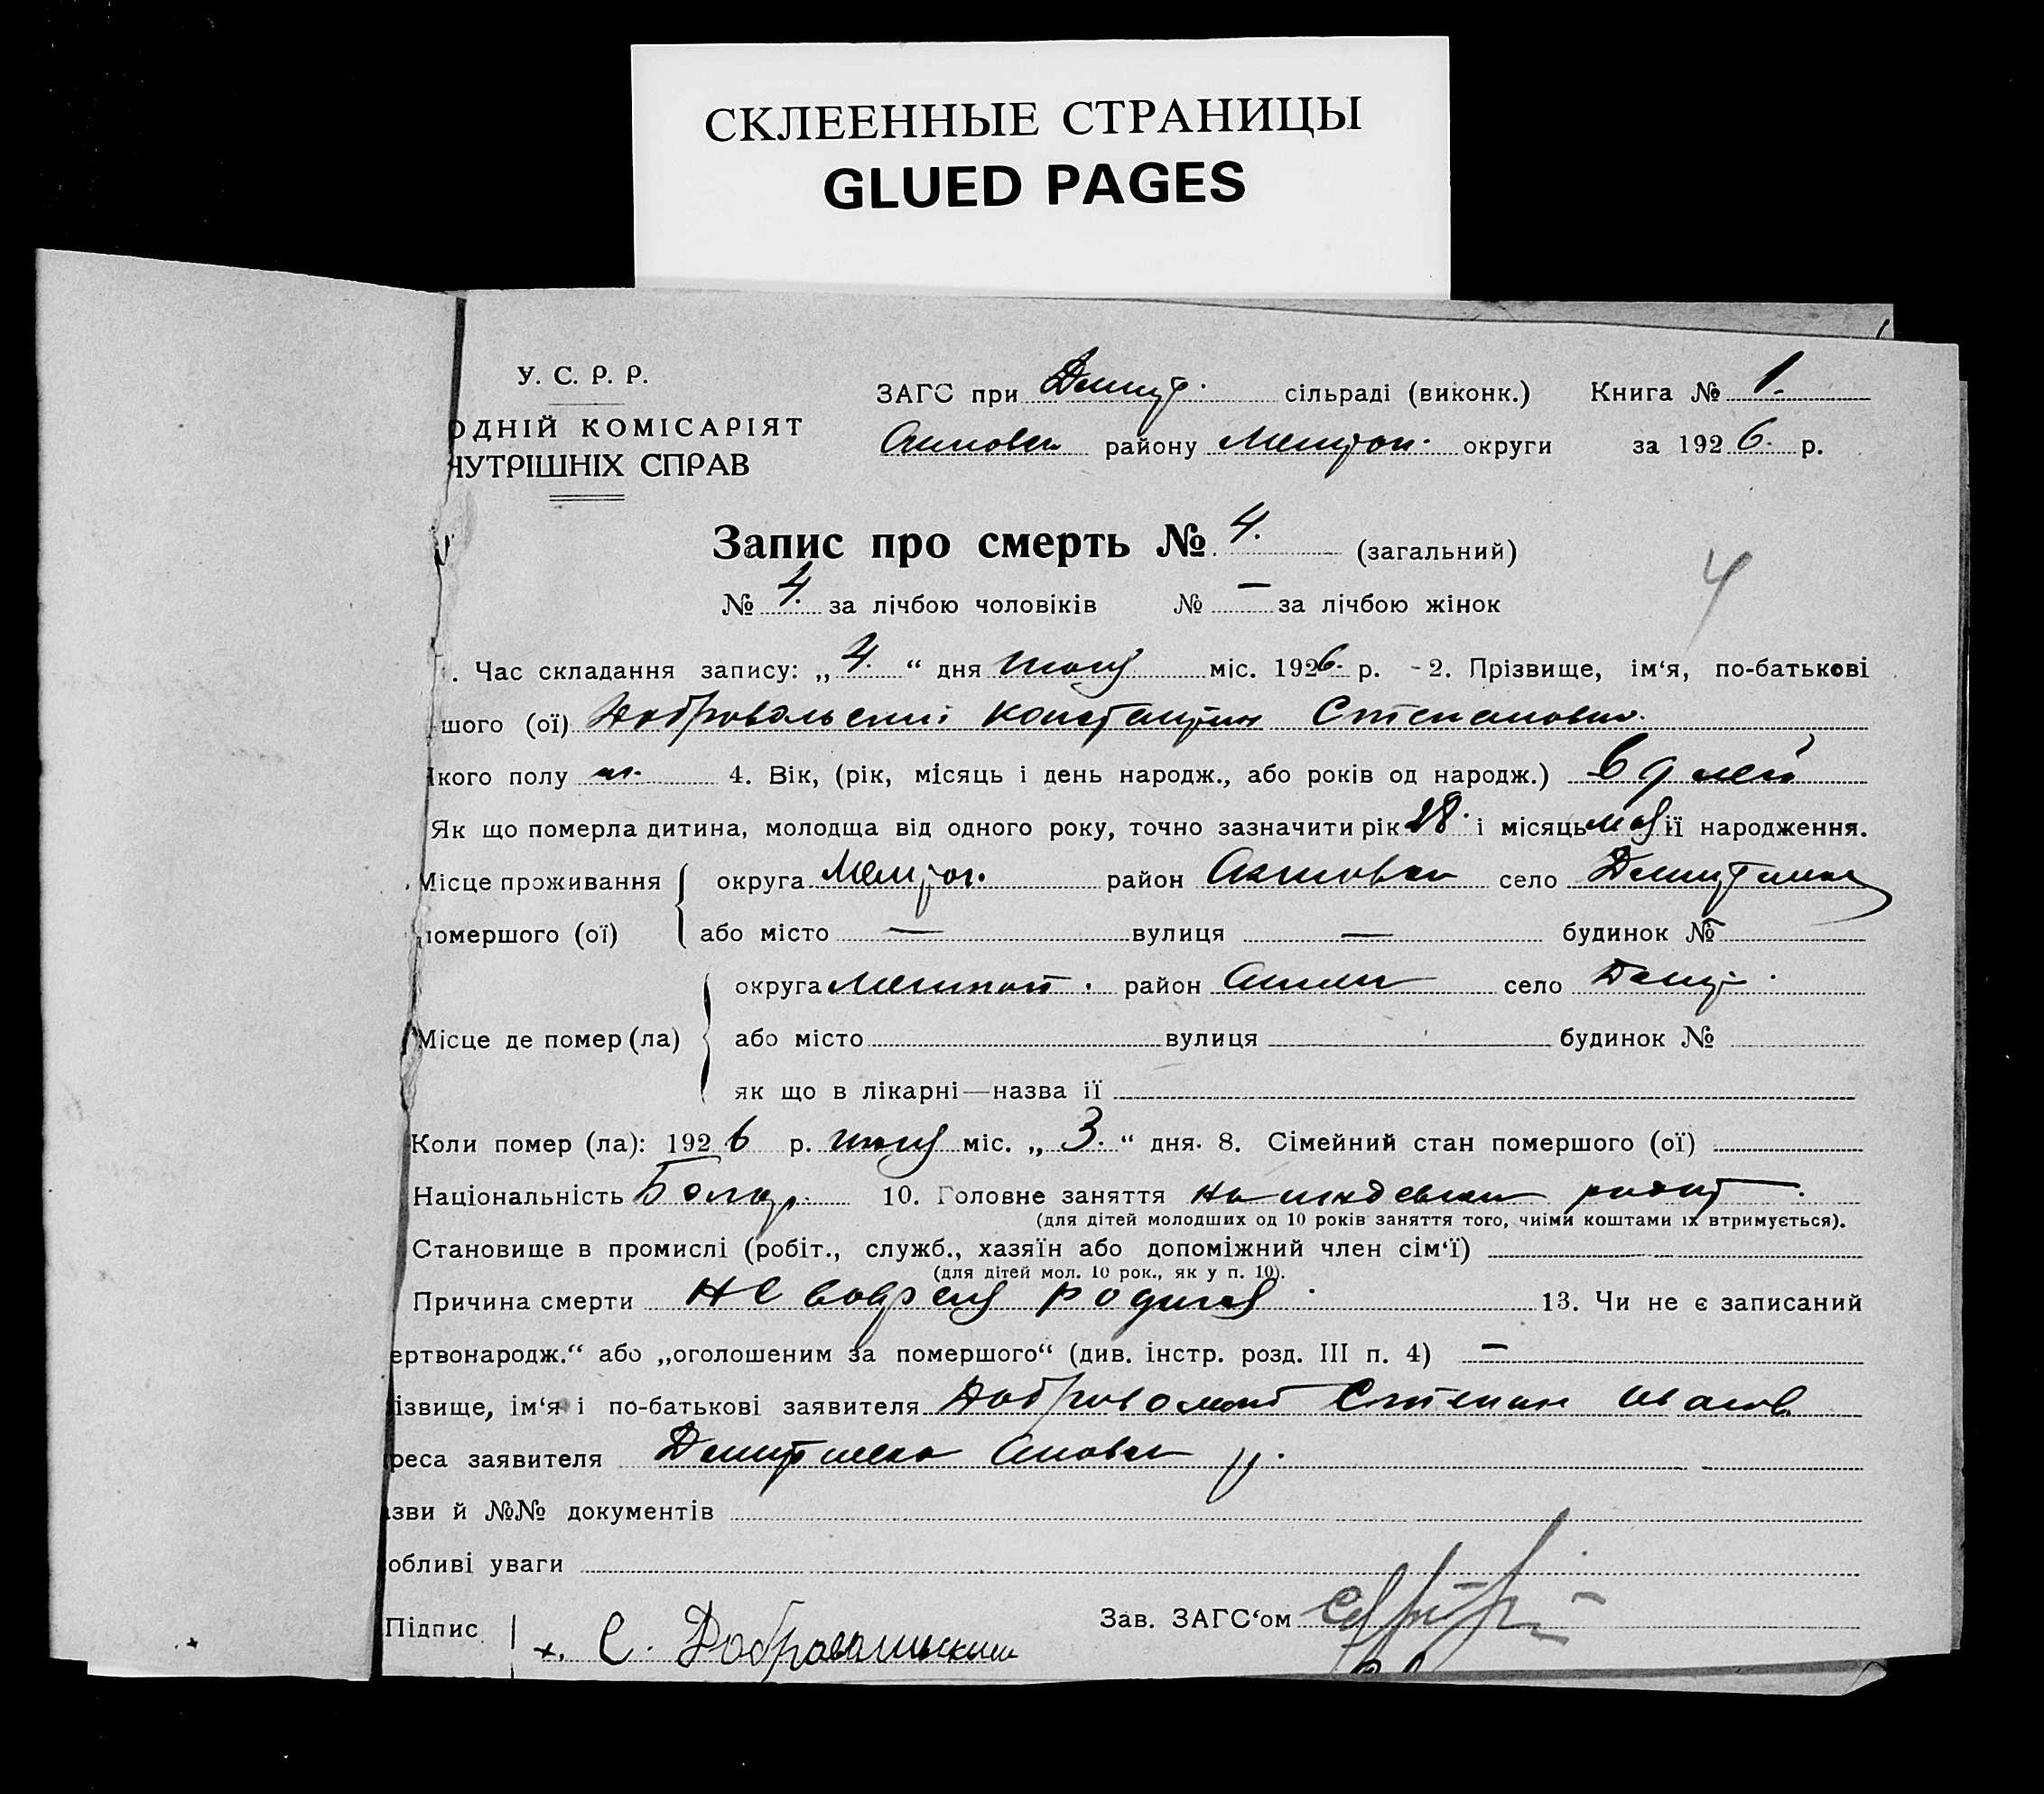 СКЛЕЕННЫЕ СТРАНИЦЫ
GLUED PAGES
У. С. Р. Р.
ОДНІЙ КОМІСАРІЯТ
НУТРІШНІХ СПРАВ
ЗАГС при Димит. сільраді (виконк.) Книга № 1.
району Мелитоп. округи за 1926. р.
Запис про смерть № 4. (загальний)
№ 4. за лічбою чоловіків № — за лічбою жінок
4
. Час складання запису: „4.“ дня міс. 1926. р. -2. Прізвище, ім‘я, по-батькові
шого (ої) Добровольский Константин Степанович.
якого полу м. 4. Вік, (рік, місяць і день народж., або років од народж.) 6 дней
Як що померла дитина, молодща від одного року, точно зазначити рік 28. і місяць мая її народження.
Місце проживання округа Мелитоп. район Акимовск село
помершого (ої) або місто — вулиця — будинок №
округа Мелитоп. район село Димит.
Місце де помер (ла) або місто вулиця будинок №
як що в лікарні—назва її
Коли помер (ла): 1926 р. міс. „3.“ дня. 8. Сімейний стан помершого (ої)
Національність Болгар. 10. Головне заняття на иждевении родит.
(для дітей молодших од 10 років заняття того, чиїми коштами їх втримується).
Становище в промислі (робіт., служб., хазяїн або допоміжний член сім‘ї)
(для дітей мол. 10 рок., як у п. 10).
Причина смерти не вовремя родился. 13. Чи не є записаний
ертвонародж.“ або „оголошеним за помершого“ (див. інстр. розд. III п. 4) —
ізвище, ім‘я і по-батькові заявителя Добровольский Степан Иванов.
реса заявителя р.
зви й №№ документів
обливі уваги
Підпис С. Добровольский Зав. ЗАГС‘ом